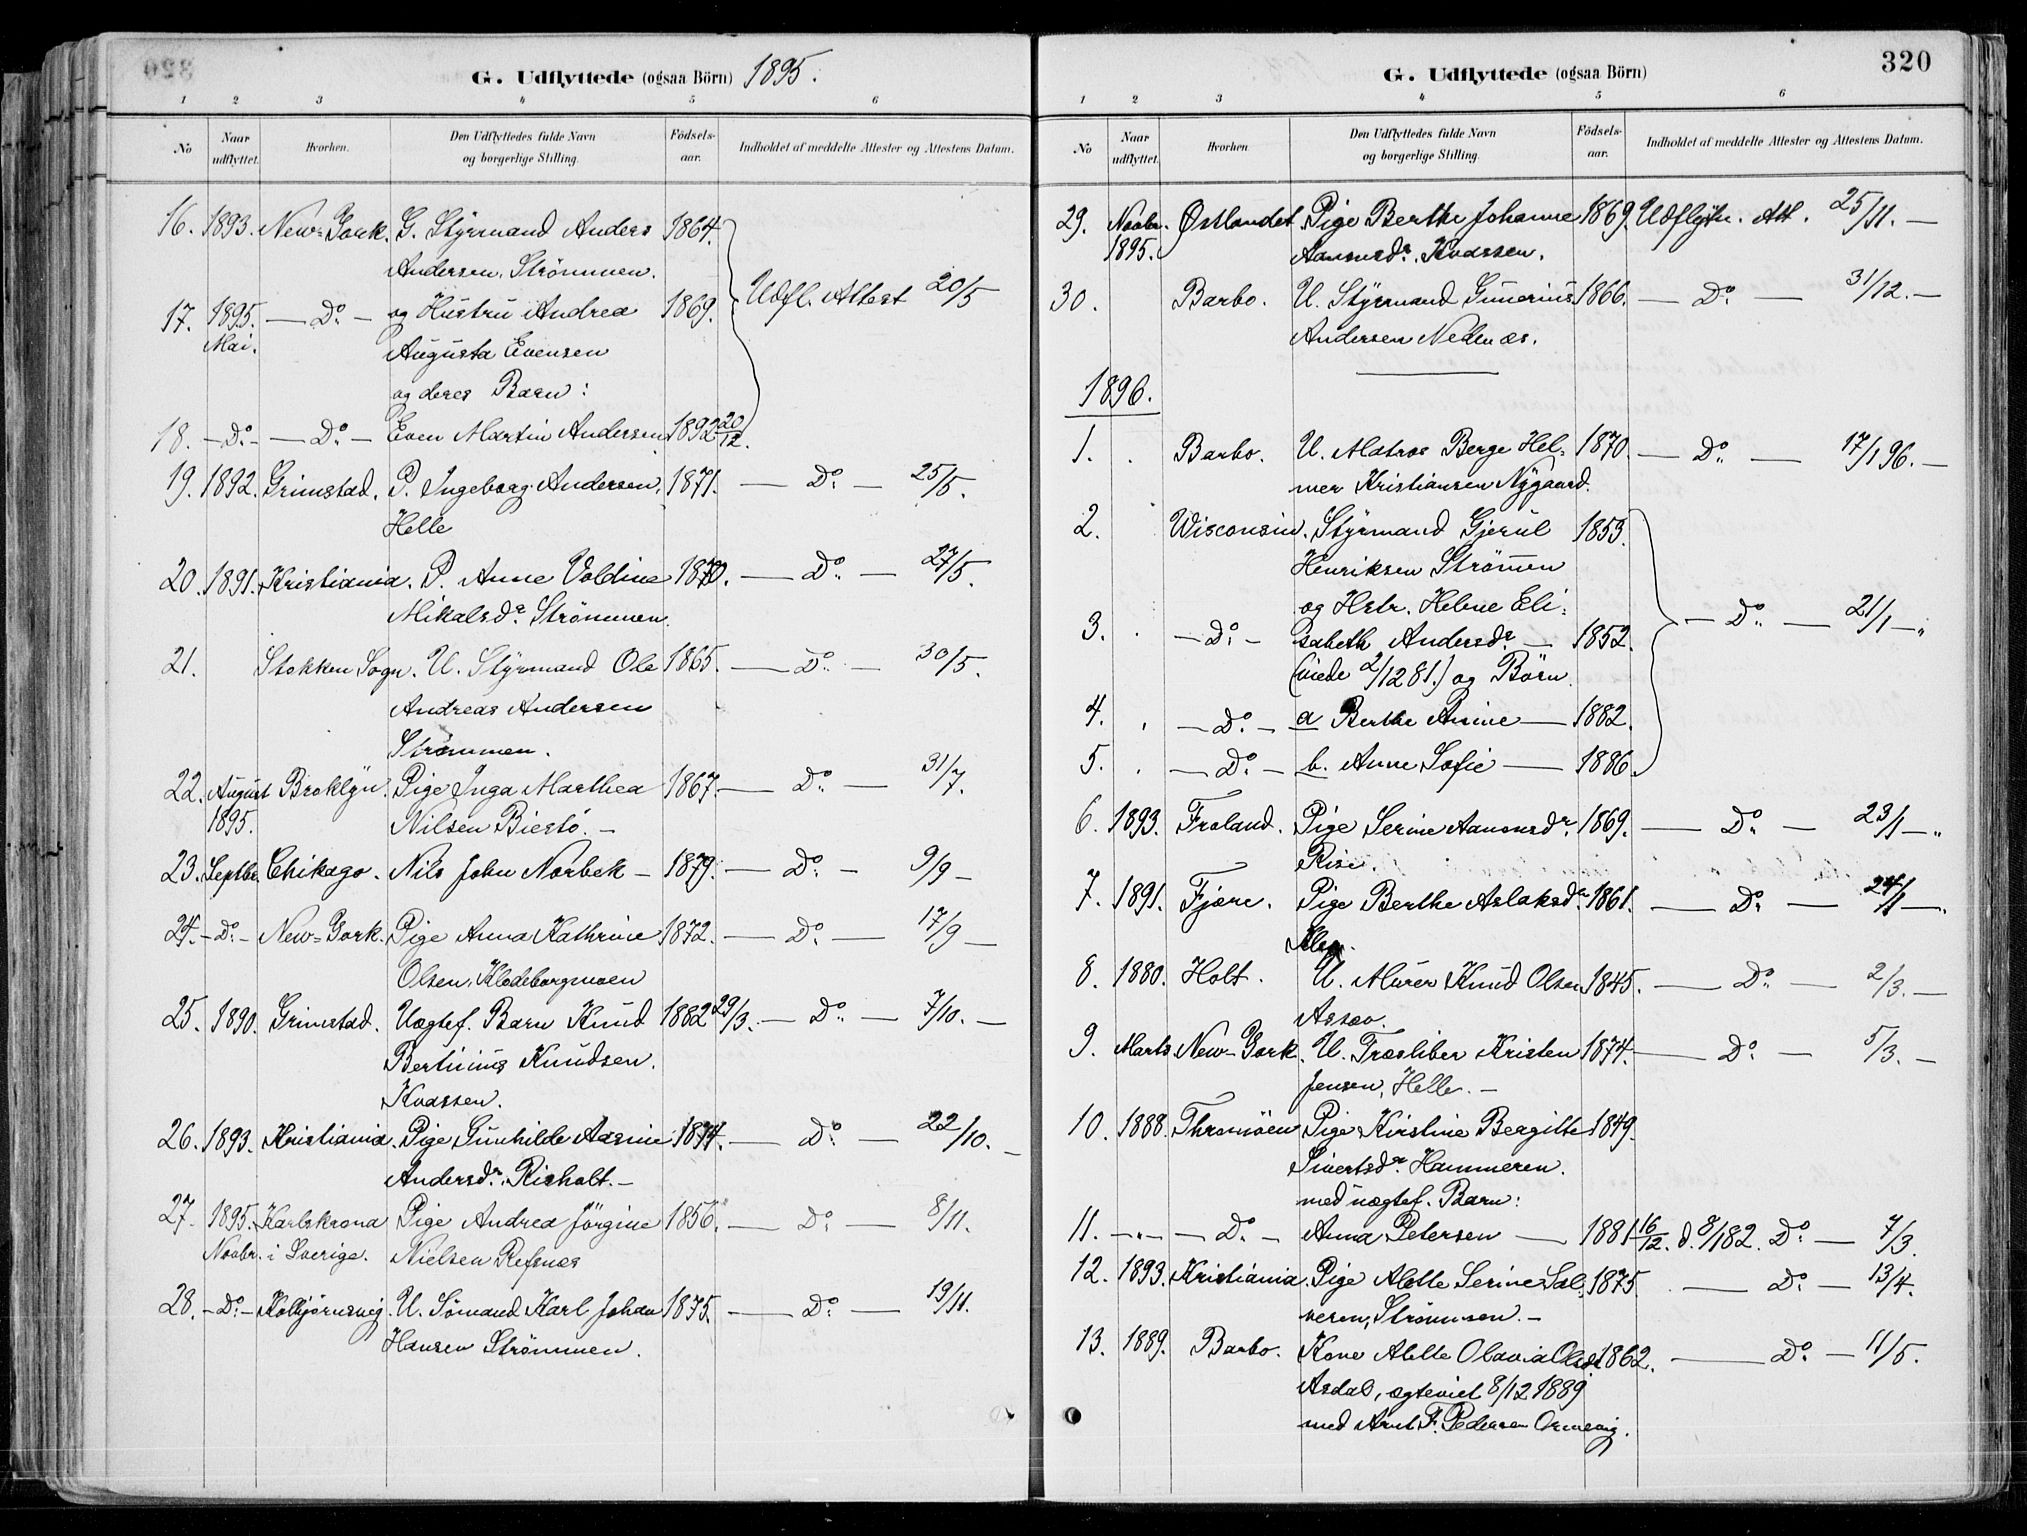 G. Udflyttede (ogsaa Börn) 1895.
1 2 3 4 5 6
No Naar udflyttet. Hvorhen. Den Udflyttedes fulde Navn og borgerlige Stilling. Födsels-aar. Indholdet af meddelte Attester og Attestens Datum.
16. 1893. New-York. G. Styrmand Anders 1864.
Andersen, Strömmen.
17. 1895. Mai. — Do. — og Hustru Andrea 1869. Udfl. Attest 20/5
Augusta Evensen
og deres Barn:
18. — Do. — — Do. — Even Martin Andersen 1892 20/12.
19. 1892. Grimstad. P. Ingeborg Andersen, 1871. — Do. — 25/5.
Helle
20. 1891. Kristiania. P. Anne Voldine 1870. — Do. — 27/5.
Mikalsdr. Strömmen.
21. Stokken Sogn. U. Styrmand Ole 1865. — Do. — 30/5.
Andreas Andersen
Strömmen.
22. August Broklyn. Pige Inga Marthea 1867. — Do. — 31/7.
1895. Nilsen Biestö. —
23. Septbr. Chikago. Nils John Norbek — 1879. — Do. — 9/9 —
24. — Do. — New-York. Pige Anna Kathrine 1872. — Do. — 17/9 —
Olsen, Klodeborgmoen
25. 1890. Grimstad. Uægtef. Barn Knud 1882 29/3. — Do. — 7/10. —
Bertinius Knudsen.
Kvassen.
26. 1893. Kristiania. Pige Gunhilde Aasine 1874. — Do. — 22/10. —
Andersdr. Risholt. —
27. 1895. Karlskrona Pige Andrea Jörgine 1856. — Do. — 8/11.
Novbr. i Sverige. Nielsen Refsnes
28. — Do. — Kolbjörnsvig. U. Sömand Karl Johan 1875. — Do. — 19/11.
Hansen Strömmen.
G. Udflyttede (ogsaa Börn) 320
1 2 3 4 5 6
No Naar udflyttet. Hvorhen Den Udflyttedes fulde Navn og borgerlige Stilling. Födsels-aar. Indholdet af meddelte Attester og Attestens Datum.
29. Novbr. Østlandet. Pige Berthe Johanne 1869. Udflytn. Att. 25/11. —
1895. Aanonsdr. Kvassen.
30. Barbo. U. Styrmand Gunerius 1866. — Do. — 31/12. —
Andersen Nedenæs.
1896.
1. Barbo. U. Matros Berge Hel- 1870. — Do. — 17/1 96. —
mer Kristiansen Nygaard.
2. Wisconsin. Styrmand Gjerul 1853.
Henriksen Strömen
og Hstr. Helene Eli-
3. — Do. — sabeth Andersdr. — 1852. — Do. — 21/1 — "
(viede 2/12 81.) og Börn.
4. — Do. — a Berthe Amine — 1882.
5. — Do. — b. Anne Sofie — 1886.
6. 1893. Froland. Pige Serine Aanonsdr. 1869. — Do. — 23/1 — "
Rise.
7. 1891. Fjære. Pige Berthe Aslaksdr. 1861. — Do. — 24/1 — "
8. 1880. Holt. U. Murer Knud Olsen 1845. — Do. — 2/3. —
Assev.
9. Marts New-York. U. Træsliber Kristen 1874. — Do. — 5/3. —
Jensen, Helle. —
10. 1888. Thromöen Pige Kirstine Bergitte 1849.
Sivertsdr. Hammeren.
med uægtef. Barn:
11. — " — — Do. — Anna Petersen — 1881 16/12. d. 8/1 82. Do. — 7/3.
12. 1893. Kristiania. Pige Alette Serine Sal- 1875 — Do. — 13/4.
vesen, Strömmen. —
13. 1889. Barbo. Kone Alette Olavia Olsdr. 1862. — Do. — 11/5.
Asdal, ægteviet 8/12 1889
med Arnt F. Pedersen Ormevig.